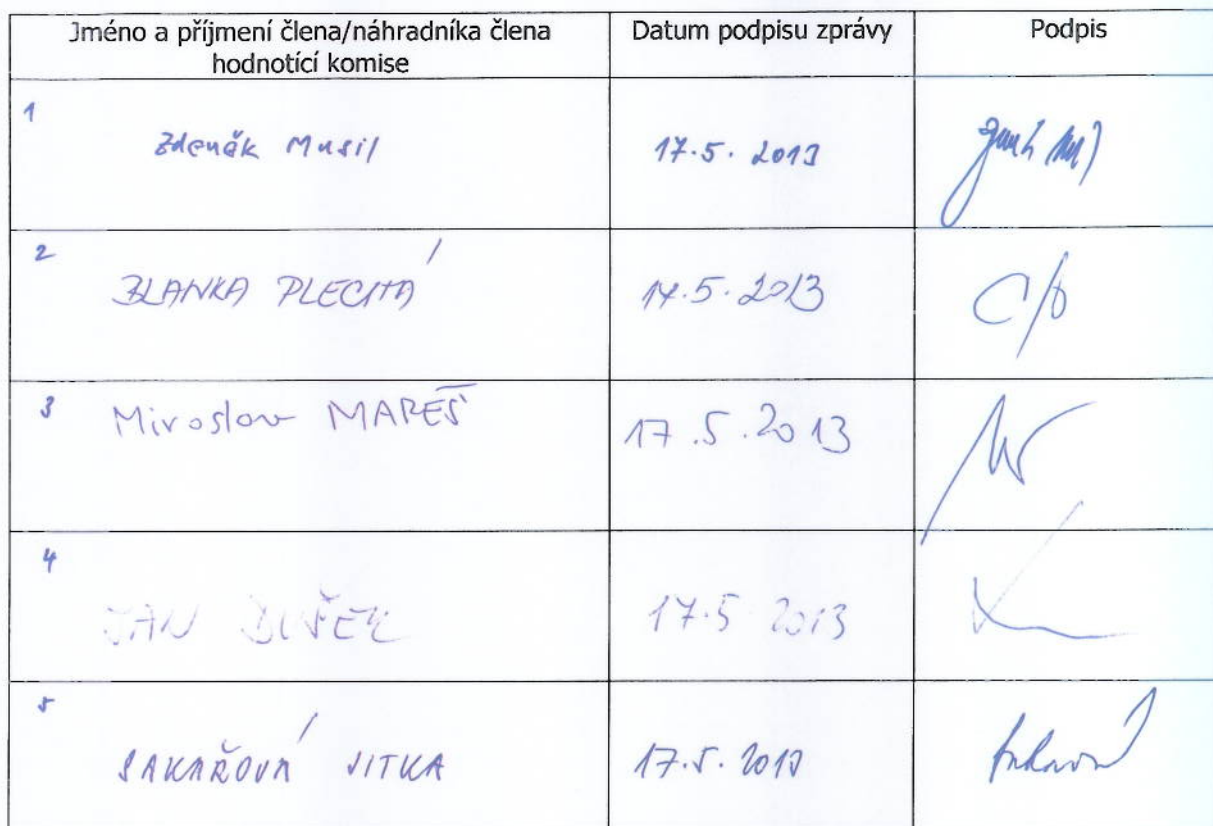 Jméno a příjmení člena/náhradníka člena
hodnotící komise
Datum podpisu zprávy
Podpis
1
Zdeněk Musil
17.5.2013
2
BLANKA PLECITÁ
17.5.2013
3
Miroslav MAREŠ
17.5.2013
4
JAN DUŠEK
17.5 2013
5
SAKAŘOVÁ JITKA
17.5.2013